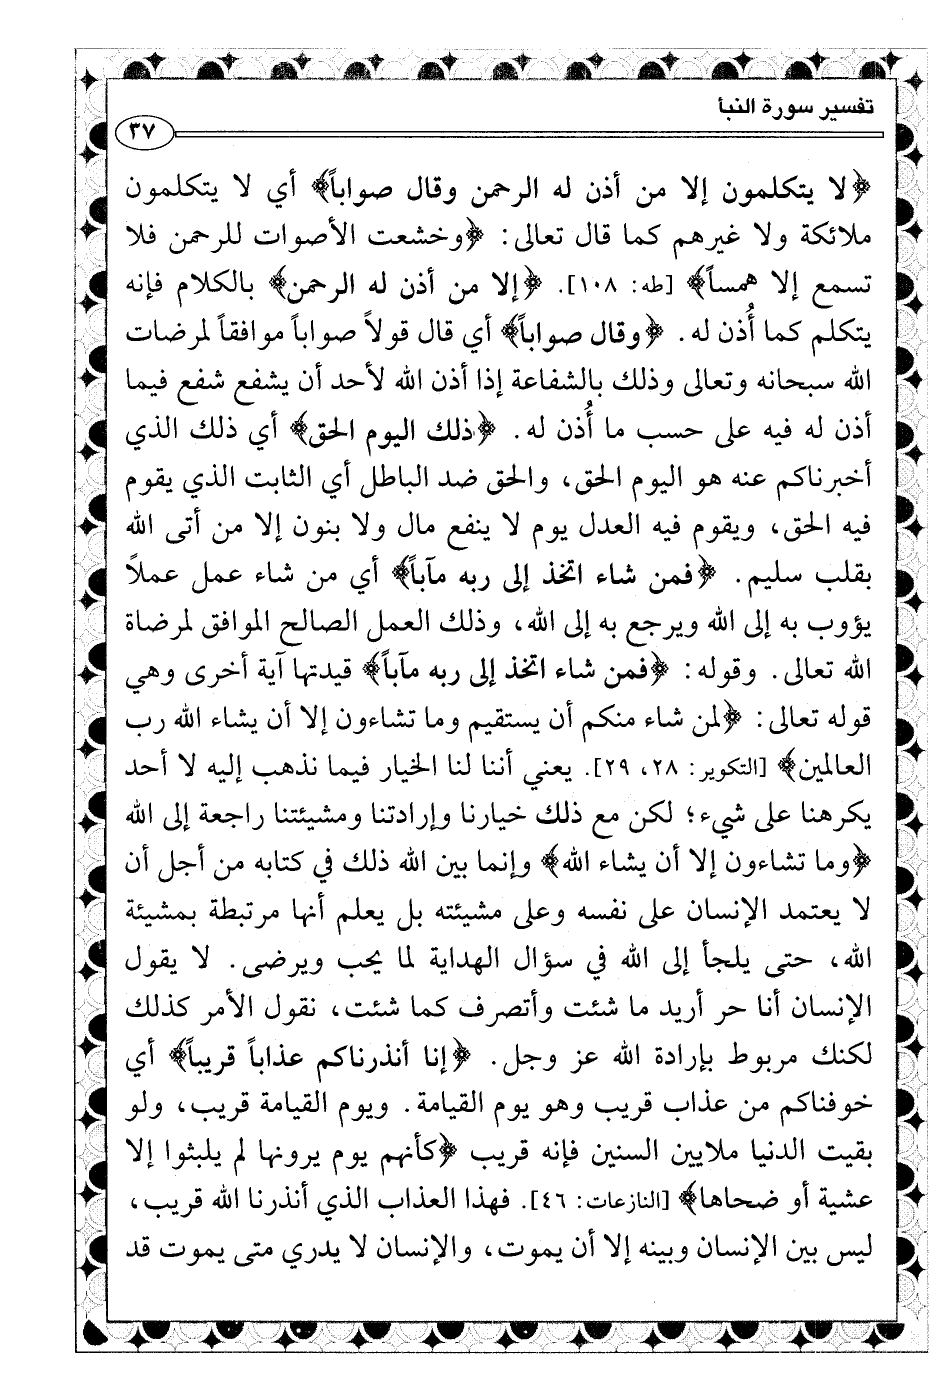 تفسير سورة النبأ
٣٧
﴿لا يتكلمون إلا من أذن له الرحمن وقال صواباً﴾ أي لا يتكلمون
ملائكة ولا غيرهم كما قال تعالى: ﴿وخشعت الأصوات للرحمن فلا
تسمع إلا همساً﴾ [طه: ١٠٨]. ﴿إلا من أذن له الرحمن﴾ بالكلام فإنه
يتكلم كما أُذن له. ﴿وقال صواباً﴾ أي قال قولاً صواباً موافقاً لمرضات
الله سبحانه وتعالى وذلك بالشفاعة إذا أذن الله لأحد أن يشفع شفع فيما
أذن له فيه على حسب ما أُذن له. ﴿ذلك اليوم الحق﴾ أي ذلك الذي
أخبرناكم عنه هو اليوم الحق، والحق ضد الباطل أي الثابت الذي يقوم
فيه الحق، ويقوم فيه العدل يوم لا ينفع مال ولا بنون إلا من أتى الله
بقلب سليم. ﴿فمن شاء اتخذ إلى ربه مآباً﴾ أي من شاء عمل عملاً
يؤوب به إلى الله ويرجع به إلى الله، وذلك العمل الصالح الموافق لمرضاة
الله تعالى. وقوله: ﴿فمن شاء اتخذ إلى ربه مآباً﴾ قيدتها آية أخرى وهي
قوله تعالى: ﴿لمن شاء منكم أن يستقيم وما تشاءون إلا أن يشاء الله رب
العالمين﴾ [التكوير: ٢٨، ٢٩]. يعني أننا لنا الخيار فيما نذهب إليه لا أحد
يكرهنا على شيء؛ لكن مع ذلك خيارنا وإرادتنا ومشيئتنا راجعة إلى الله
﴿وما تشاءون إلا أن يشاء الله﴾ وإنما بين الله ذلك في كتابه من أجل أن
لا يعتمد الإنسان على نفسه وعلى مشيئته بل يعلم أنها مرتبطة بمشيئة
الله، حتى يلجأ إلى الله في سؤال الهداية لما يحب ويرضى. لا يقول
الإنسان أنا حر أريد ما شئت وأتصرف كما شئت، نقول الأمر كذلك
لكنك مربوط بإرادة الله عز وجل. ﴿إنا أنذرناكم عذاباً قريباً﴾ أي
خوفناكم من عذاب قريب وهو يوم القيامة. ويوم القيامة قريب، ولو
بقيت الدنيا ملايين السنين فإنه قريب ﴿كأنهم يوم يرونها لم يلبثوا إلا
عشية أو ضحاها﴾ [النازعات: ٤٦]. فهذا العذاب الذي أنذرنا الله قريب،
ليس بين الإنسان وبينه إلا أن يموت، والإنسان لا يدري متى يموت قد